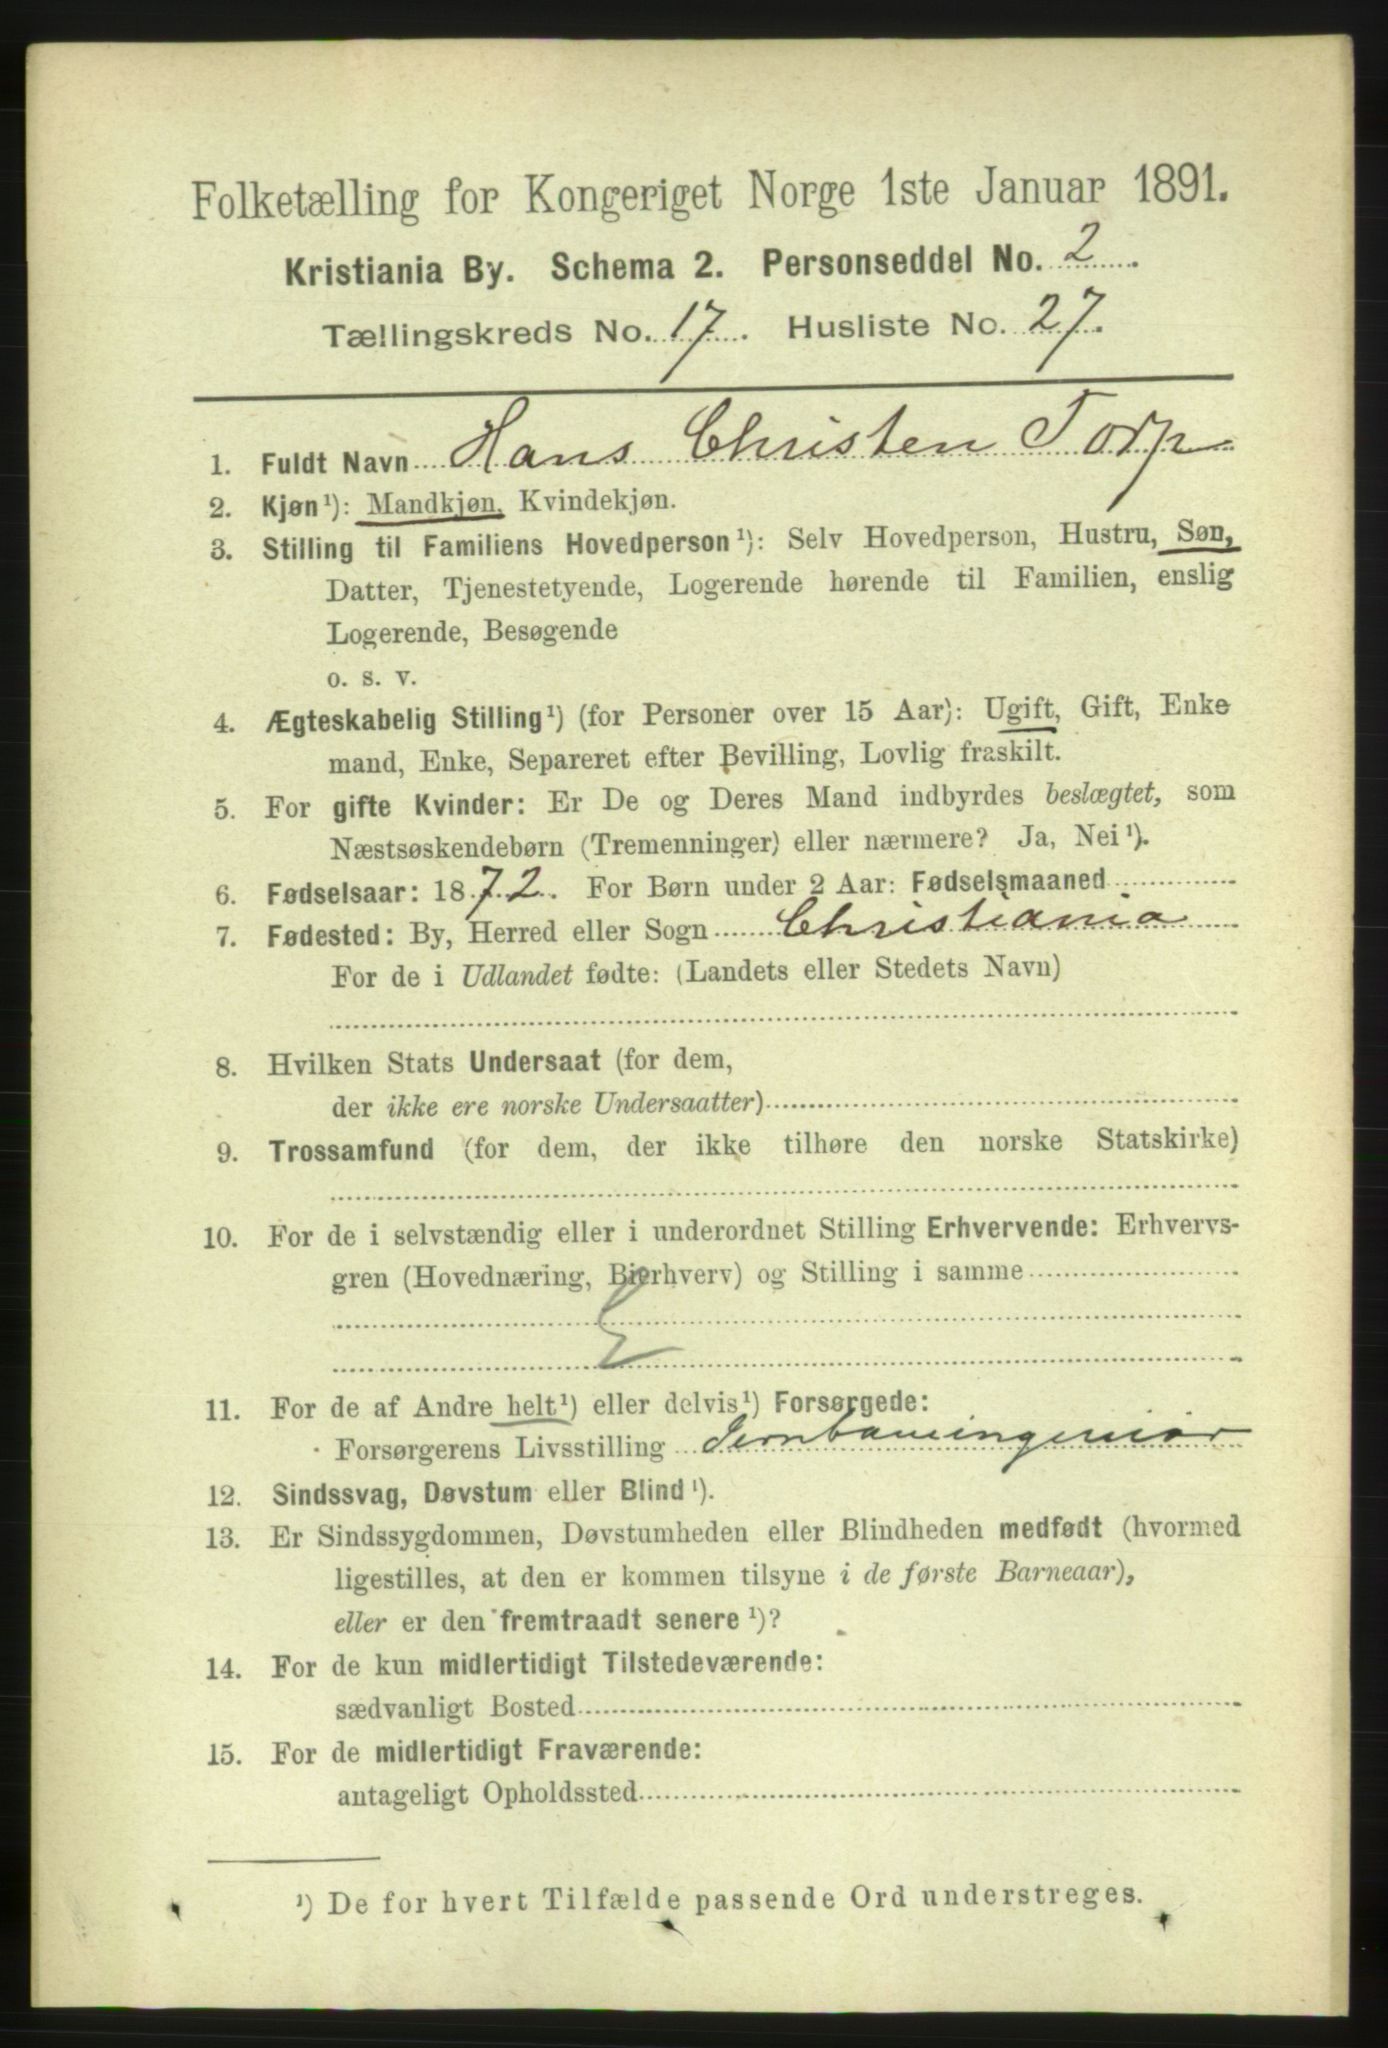 Folketælling for Kongeriget Norge 1ste Januar 1891.
Kristiania By. Schema 2. Personseddel No. 2.
Tællingskreds No. 17. Husliste No. 27.
1. Fuldt Navn Hans Christen Torp
2. Kjøn¹): Mandkjøn, Kvindekjøn.
3. Stilling til Familiens Hovedperson¹): Selv Hovedperson, Hustru, Søn,
Datter, Tjenestetyende, Logerende hørende til Familien, enslig
Logerende, Besøgende
o. s. v.
4. Ægteskabelig Stilling¹) (for Personer over 15 Aar): Ugift, Gift, Enke
mand, Enke, Separeret efter Bevilling, Lovlig fraskilt.
5. For gifte Kvinder: Er De og Deres Mand indbyrdes beslægtet, som
Næstsøskendebørn (Tremenninger) eller nærmere? Ja, Nei¹).
6. Fødselsaar: 1872. For Børn under 2 Aar: Fødselsmaaned
7. Fødested: By, Herred eller Sogn Christiania
For de i Udlandet fødte: (Landets eller Stedets Navn)
8. Hvilken Stats Undersaat (for dem,
der ikke ere norske Undersaatter)
9. Trossamfund (for dem, der ikke tilhøre den norske Statskirke)
10. For de i selvstændig eller i underordnet Stilling Erhvervende: Erhvervs-
gren (Hovednæring, Bierhverv) og Stilling i samme
11. For de af Andre helt¹) eller delvis¹) Forsørgede:
Forsørgerens Livsstilling Jernbaneingeniør
12. Sindssvag, Døvstum eller Blind¹).
13. Er Sindssygdommen, Døvstumheden eller Blindheden medfødt (hvormed
ligestilles, at den er kommen tilsyne i de første Barneaar),
eller er den fremtraadt senere¹)?
14. For de kun midlertidigt Tilstedeværende:
sædvanligt Bosted
15. For de midlertidigt Fraværende:
antageligt Opholdssted
¹) De for hvert Tilfælde passende Ord understreges.